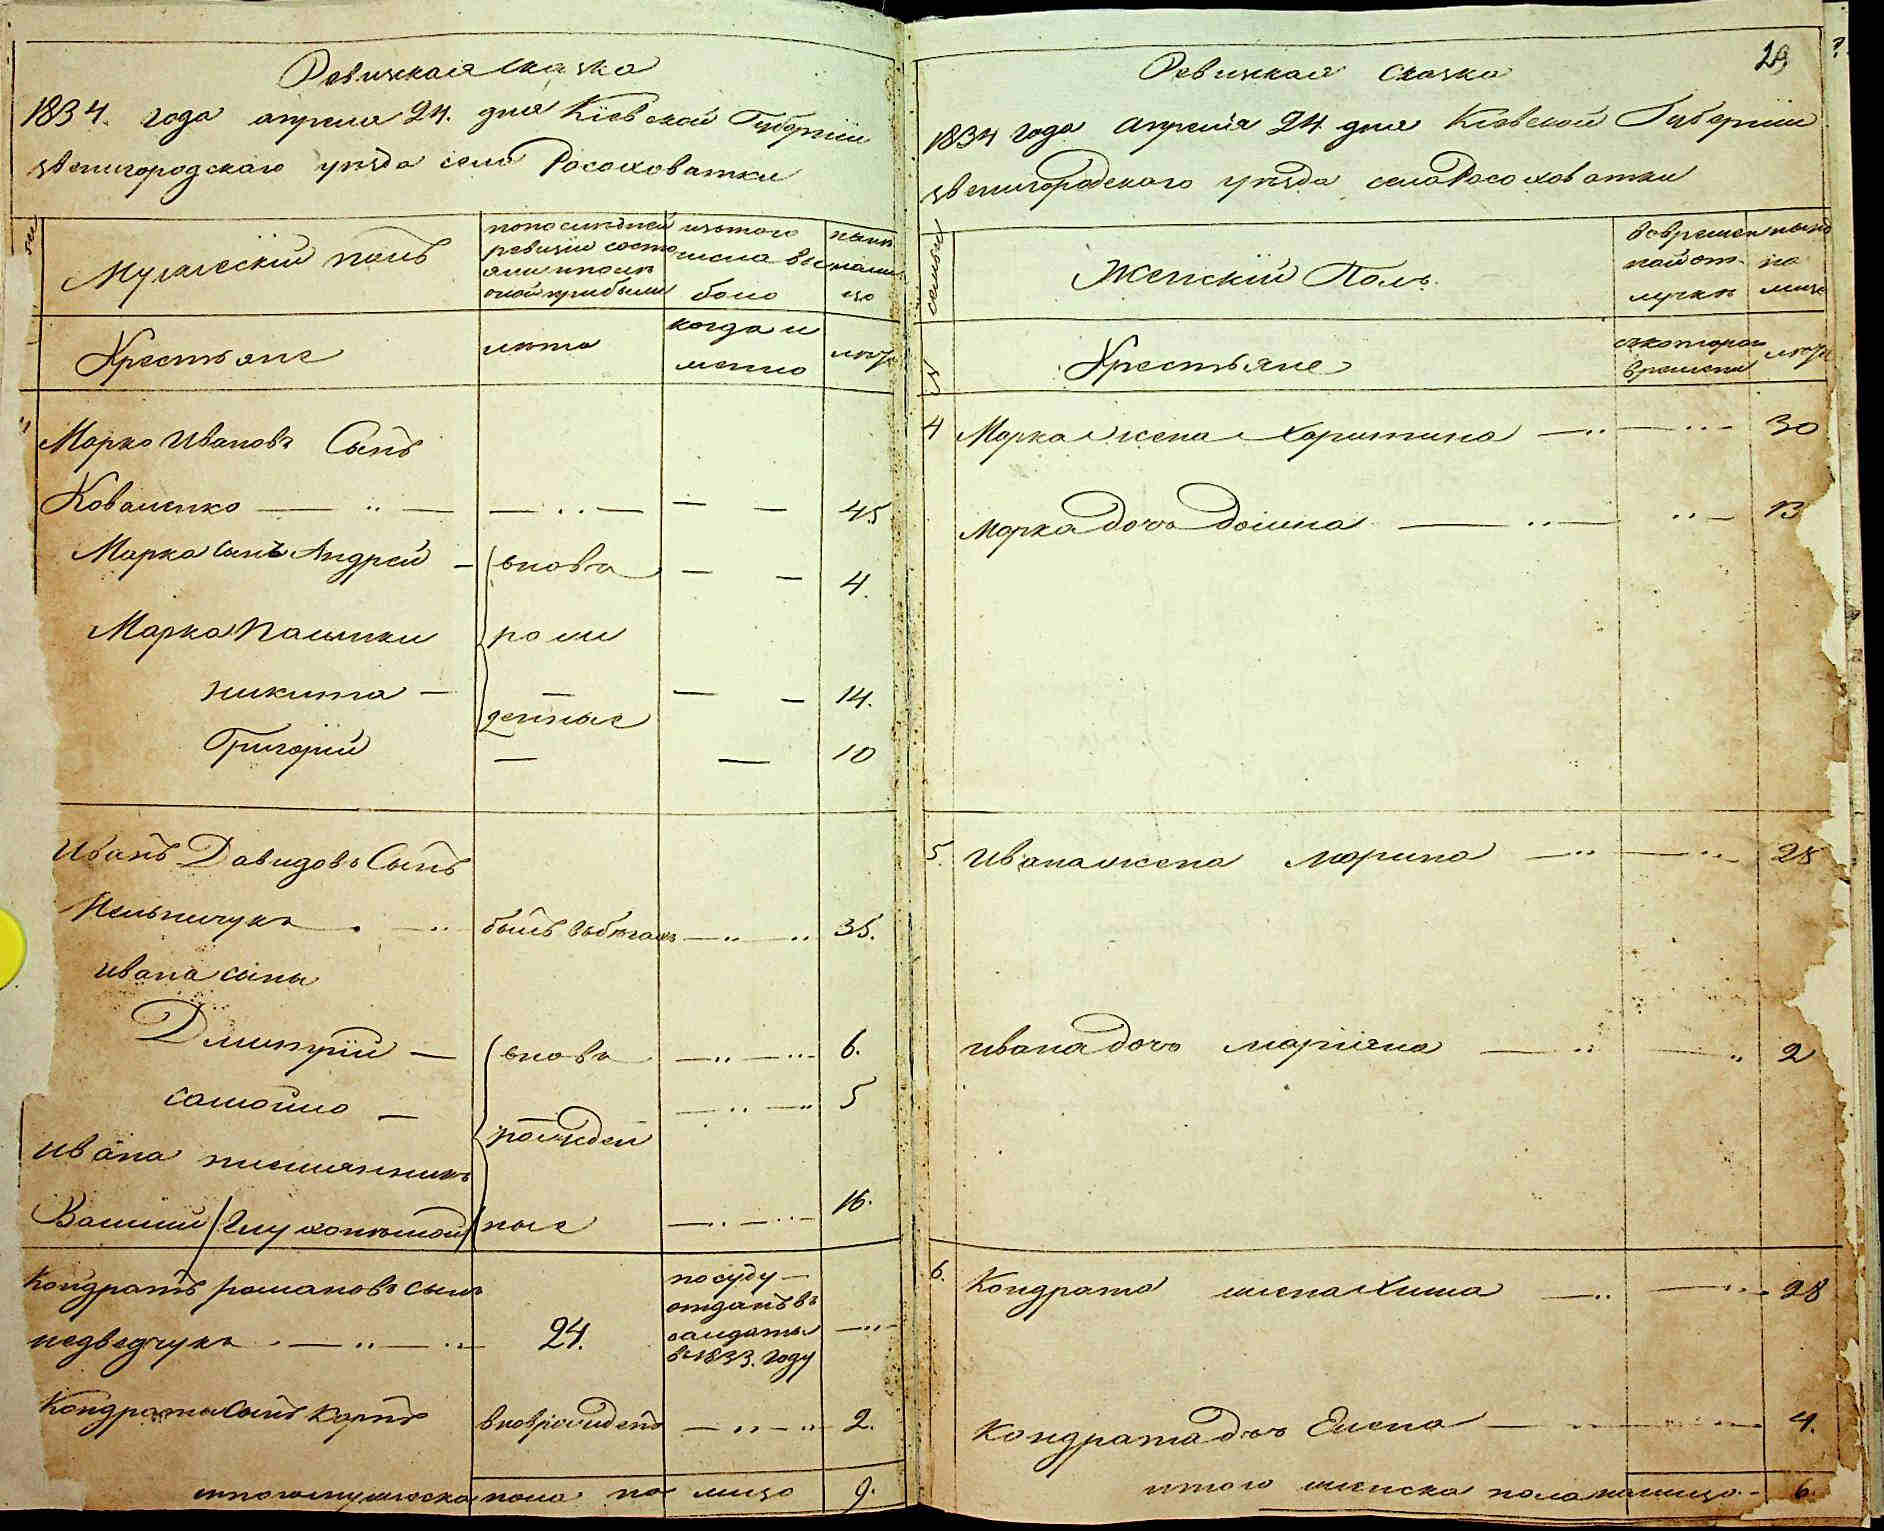 Ревижская сказка
1834. года апреля 24. дня Кіевской Губерніи
звенигородскаго уезда села Росоховатки
Мужескій полъ
по последней ревизіи состояло и после оной прибыли
изъ того числа выбыло
ныне на лицо
Крестьяне
лета
когда именно
лета
Марко Ивановъ Сынъ
Коваленко 45
Марка Сынъ Андрей вновь 4.
Марка Пасынки ро жи
Никита 14.
денные
Григорій 10
Иванъ Давидовъ Сынъ
Мельничукъ былъ въбегахъ 35.
Ивана сыны
Дмитрій вновь 6.
Самойло 5
рожден
Ивана племянникъ
Василий /Глухонемой/ ные 16.
Кондратъ романовъ сынъ
медведчукъ 24.
по суду отданъ въ солдаты въ 1833. году
Кондрата Сынъ Карпъ вновь рожденъ 2.
итого мужеска пола на лицо 9.
29
Ревижская Сказка
1834 года Апреля 24 дня Кіовской Губерніи
звенигородского уезда села Росоховатки
семьи
Женскій Полъ.
во временной отлучке
ныне на лице
№
Крестьяне
съ которого времени
лета
4 Марка жена Харитина 30
Марка дочь домна 13
5. Ивана жена марина 28
Ивана дочь маріяна 2
6. Кондрата жена Хима 28
Кондрата дочь Елена 4.
итого женска пола на лицо 6.